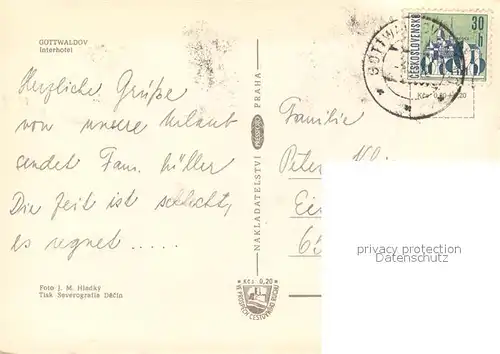 GOTTWALDOV
Interhotel
Herzliche Grüße
von unsere Urlaub
sendet Fam. Müller
Die Zeit ist schlecht,
es regnet .....
Foto J. M. Hladký
Tisk Severografia Děčín
NAKLADATELSTVÍ PRAHA
Kčs 0,20
VE PROSPĚCH CESTOVNÍHO RUCHU
ČESKOSLOVENSKO
30
h
GOTTWAL
Familie
Peter
Ei
65
privacy protection
Datenschutz